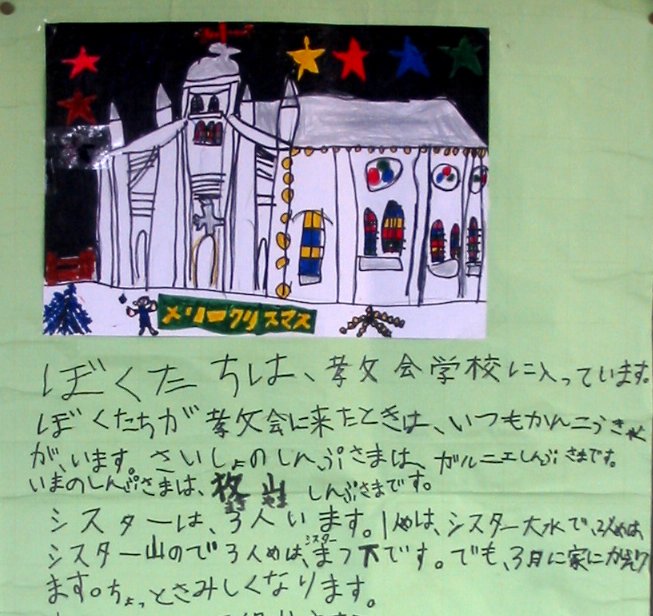 メリークリスマス
ぼくたちは、孝女会学校に入っています。
ぼくたちが孝女会に来たときは、いつもかんこうきゃく
が、います。さいしょのしんぷさまは、ガルニエしんぷさまです。
いまのしんぷさまは、牧山しんぷさまです。
シスターは、3人います。1人めは、シスター大水で、2人めは、
シスター山ので3人めは、シスターまつ下です。でも、3月に家にかえり
ます。ちょっとさみしくなります。